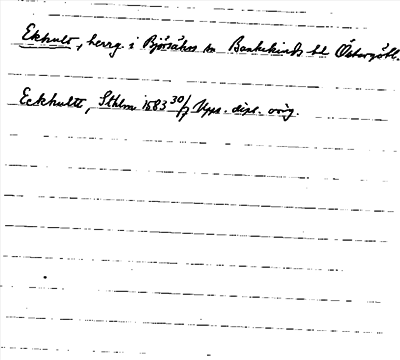 Ekhult, herrg. i Björsäters sn Bankekinds hd Östergötl.
Eckhultt, Sthlm 1583 30/7 Upps. dipl. orig.